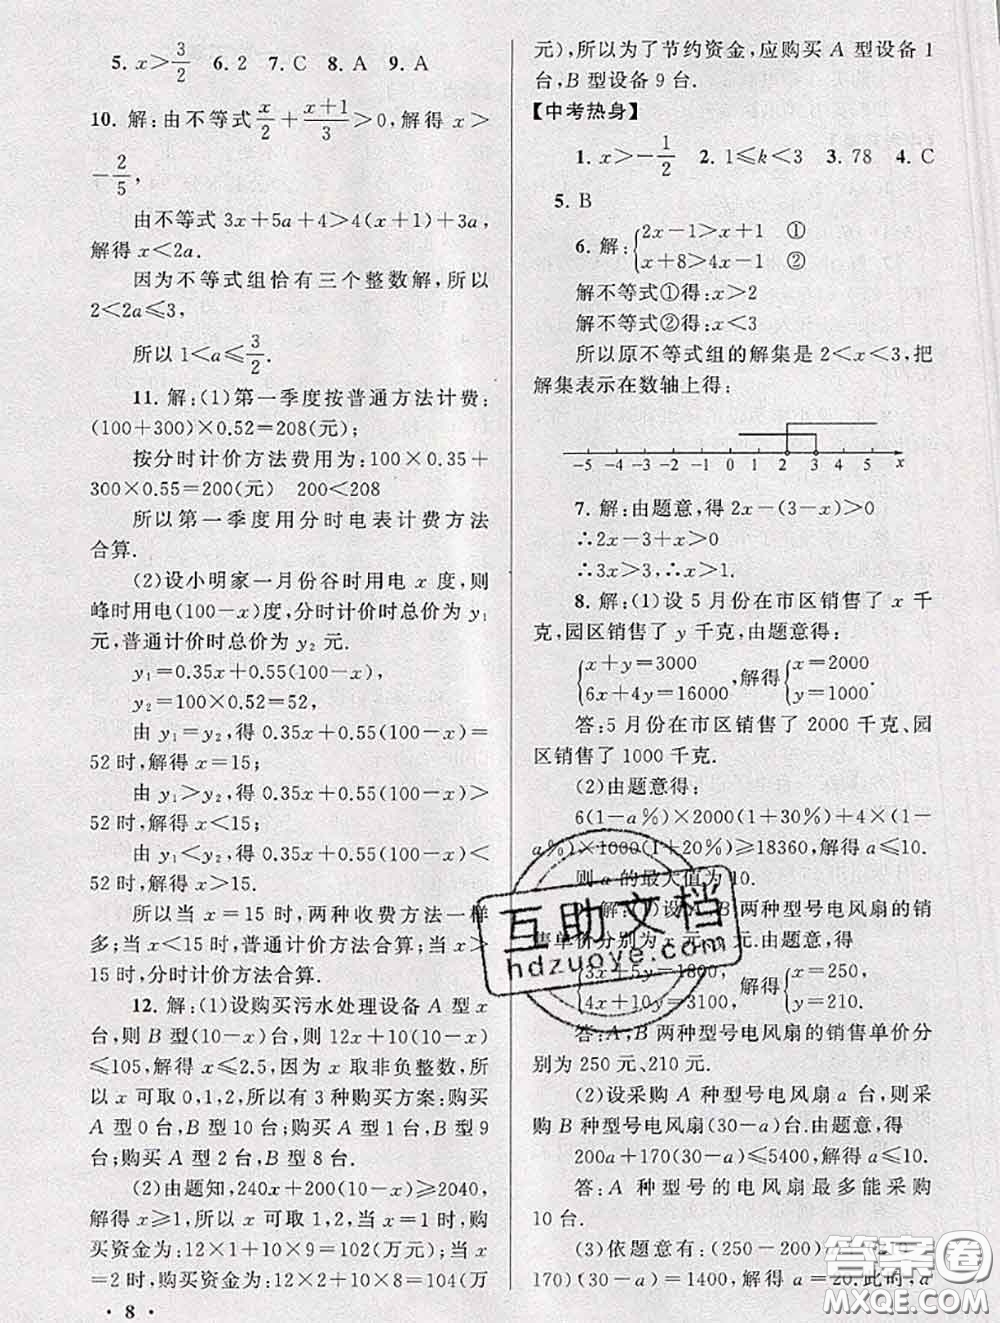 5. x>3/2  6. 2  7. C  8. A  9. A
10. 解:由不等式x/2+(x+1)/3>0,解得 x>
-2/5,
由不等式 3x+5a+4>4(x+1)+3a,
解得 x<2a.
因为不等式组恰有三个整数解,所以
2<2a≤3,
所以 1<a≤3/2.
11. 解:(1)第一季度按普通方法计费:
(100+300)×0.52=208(元);
按分时计价方法费用为:100×0.35+
300×0.55=200(元)  200<208
所以第一季度用分时电表计费方法
合算.
(2)设小明家一月份谷时用电 x 度,则
峰时用电(100-x)度,分时计价时总价为 y₁
元,普通计价时总价为 y₂ 元.
y₁=0.35x+0.55(100-x),
y₂=100×0.52=52,
由 y₁=y₂,得 0.35x+0.55(100-x)=
52 时,解得 x=15;
由 y₁>y₂,得 0.35x+0.55(100-x)>
52 时,解得 x<15;
由 y₁<y₂,得 0.35x+0.55(100-x)<
52 时,解得 x>15.
所以当 x=15 时,两种收费方法一样
多;当 x<15 时,普通计价方法合算;当 x>
15 时,分时计价方法合算.
12. 解:(1)设购买污水处理设备 A 型 x
台,则 B 型(10-x)台,则 12x+10(10-x)
≤105,解得 x≤2.5,因为 x 取非负整数,所
以 x 可取 0,1,2,所以有 3 种购买方案:购买
A 型 0 台,B 型 10 台;购买 A 型 1 台,B 型 9
台;购买 A 型 2 台,B 型 8 台.
(2)由题知,240x+200(10-x)≥2040,
解得 x≥1,所以 x 可取 1,2,当 x=1 时,购
买资金为:12×1+10×9=102(万元);当 x
=2 时,购买资金为:12×2+10×8=104(万
· 8 ·
元),所以为了节约资金,应购买 A 型设备 1
台,B 型设备 9 台.
【中考热身】
1. x>-1/2  2. 1≤k<3  3. 78  4. C
5. B
6. 解:{2x-1>x+1 ①
x+8>4x-1 ②
解不等式①得:x>2
解不等式②得:x<3
所以原不等式组的解集是 2<x<3,把
解集表示在数轴上得:
-5 -4 -3 -2 -1 0 1 2 3 4 5 x
7. 解:由题意,得 2x-(3-x)>0
∴2x-3+x>0
∴3x>3,∴x>1.
8. 解:(1)设 5 月份在市区销售了 x 千
克,园区销售了 y 千克,由题意得:
{x+y=3000 6x+4y=16000,解得{x=2000 y=1000.
答:5 月份在市区销售了 2000 千克、园
区销售了 1000 千克.
(2)由题意得:
6(1-a%)×2000(1+30%)+4×(1-
a%)×1000(1+20%)≥18360,解得 a≤10.
则 a 的最大值为 10.
解:(1)设 A、B 两种型号电风扇的销
售单价分别为 x 元、y 元.由题意,得
{3x+5y=1800, 4x+10y=3100,解得{x=250, y=210.
答:A、B 两种型号电风扇的销售单价分
别为 250 元、210 元.
(2)设采购 A 种型号电风扇 a 台,则采
购 B 种型号电风扇(30-a)台.由题意,得
200a+170(30-a)≤5400,解得 a≤10.
答:A 种型号的电风扇最多能采购
10 台.
(3)依题意有:(250-200)
170)(30-a)=1400,解得 a=20.此时,a
互助文档
hdzuoye.com
答案圈
MXQE.COM